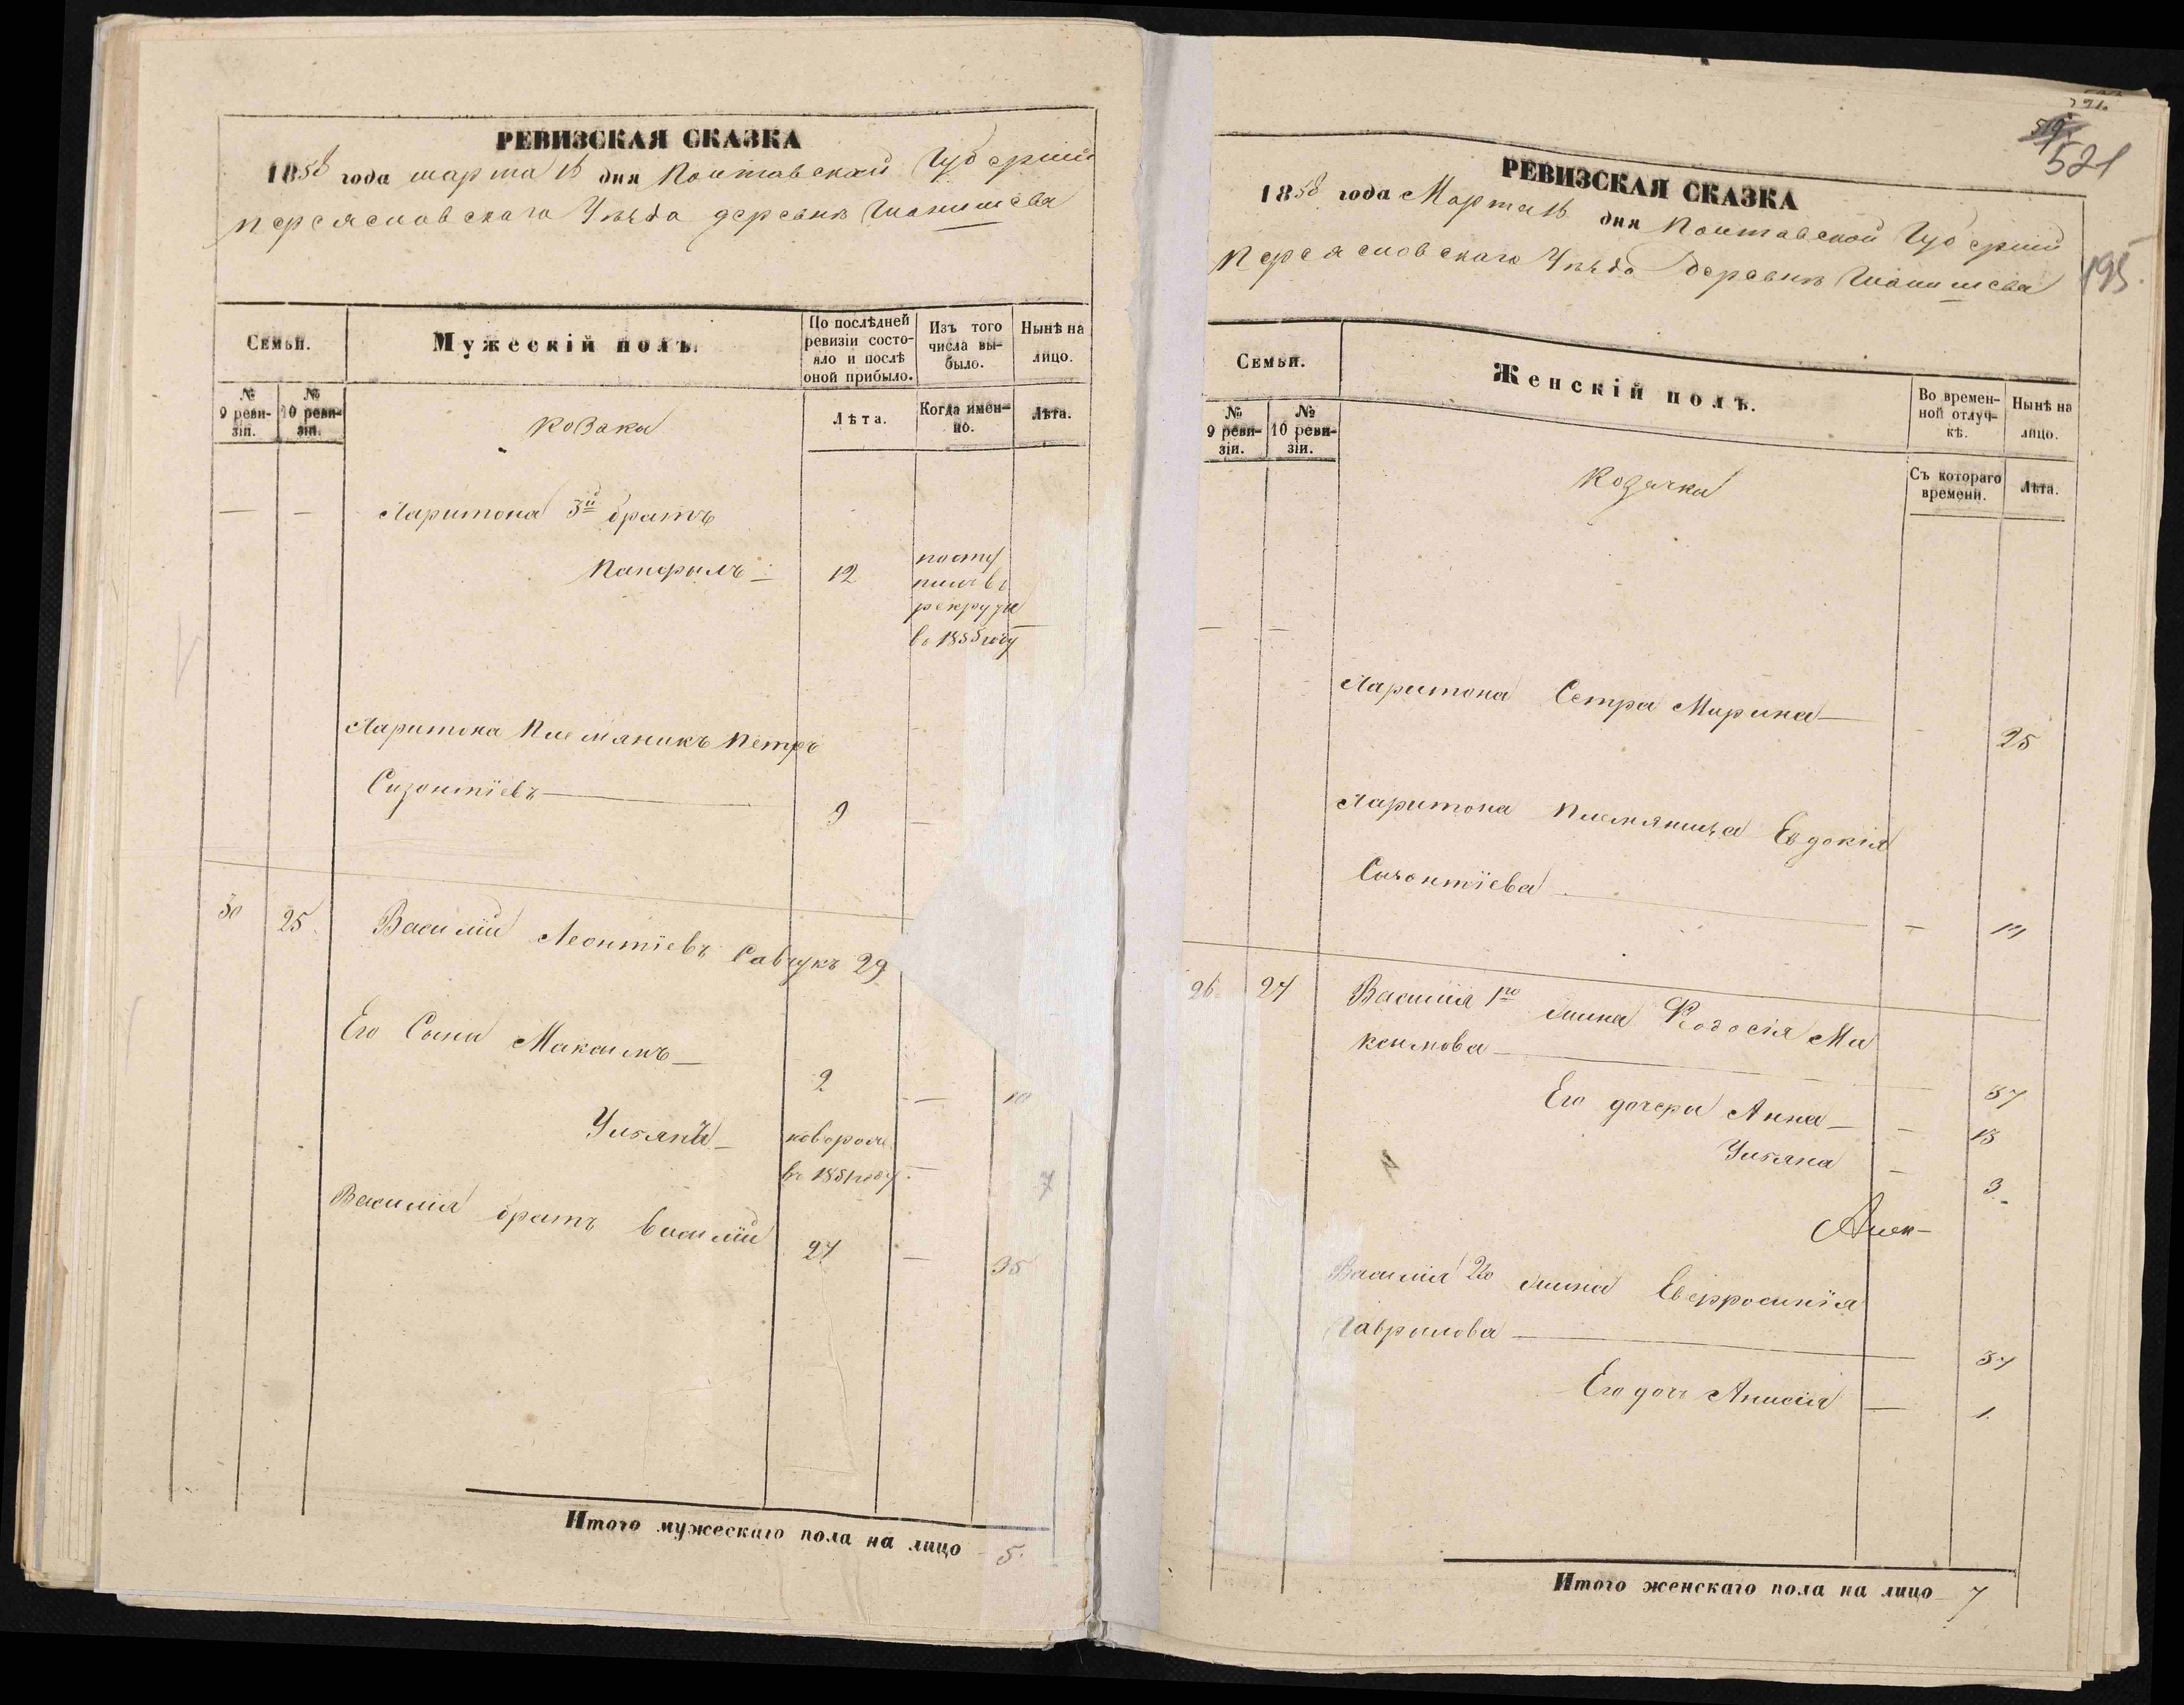 РЕВИЗСКАЯ СКАЗКА
1858 года марта 16 дня Полтавской Губерніи
Переясловскаго Уезда деревни
Семьи.
Мужескій полъ.
По послѣдней ревизіи состо-
яло и послѣ
оной прибыло.
Изъ того
числа вы-
было.
Нынѣ на
лицо.
№
9 реви-
зіи.
№
10 реви-
зіи.
Козаки
Лѣта.
Когда имен-
но.
Лѣта.
— —
Харитона 3й братъ
Панфилъ — 12
посту
пилъ въ
рекруты
в 1855 году
Харитона Племяникъ Петръ
Сизонтіевъ — 9 —
30 25. Василий Леонтіевъ Савчукъ 29
Его Сыни Максимъ — 2 — 10
Ульянъ —
новорож
въ 1851 году — 7
Василія братъ Василій 27 — 35
Итого мужескаго пола на лицо 5.
521
195.
РЕВИЗСКАЯ СКАЗКА
1858 года Марта 16 дня Полтавской Губерніи
Переясловскаго Уезда деревни
Семьи.
Женскій полъ.
Во времен-
ной отлуч-
кѣ.
Нынѣ на
лицо.
№
9 реви-
зіи.
№
10 реви-
зіи.
Козачки
Съ котораго
времени.
Лѣта.
— —
Харитона Сетра Марина — 25
Харитона Племяница Евдокія
Сизонтіева —
26. 27 Василія 1го жина Феодосія Ма
ксимова — 37
Его дочери Анна — 13
Ульяна — 3
Василія 2го жина Евфросинія
Гаврилова — 37
Его дочь Анисія — 1.
Итого женскаго пола на лицо 7